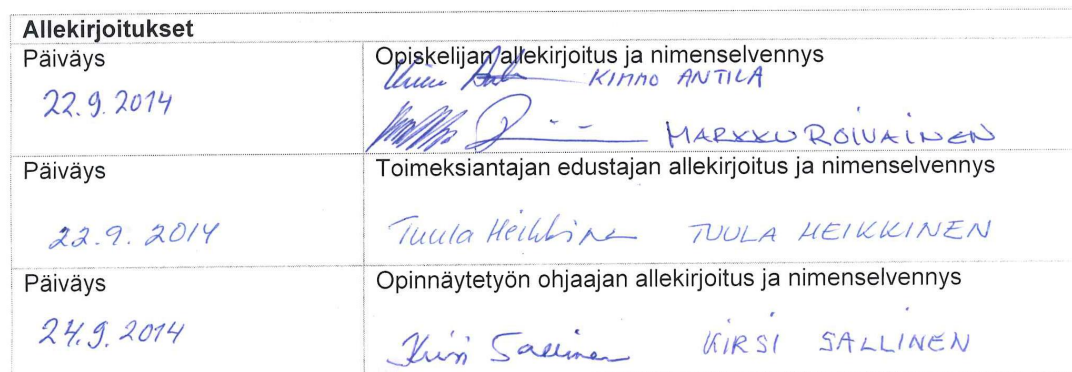 Allekirjoitukset
Päiväys Opiskelijan allekirjoitus ja nimenselvennys
22.9.2014 KIMMO ANTILA
MARKKU ROIVAINEN
Päiväys Toimeksiantajan edustajan allekirjoitus ja nimenselvennys
22.9.2014 Tuula Heikkinen TUULA HEIKKINEN
Päiväys Opinnäytetyön ohjaajan allekirjoitus ja nimenselvennys
24.9.2014 Kirsi Sallinen KIRSI SALLINEN